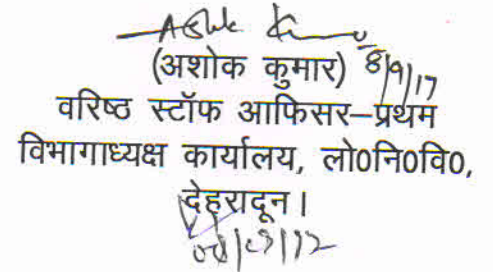 Ashok Kumar
(अशोक कुमार) 8/9/17
वरिष्ठ स्टॉफ आफिसर–प्रथम
विभागाध्यक्ष कार्यालय, लो0नि0वि0,
देहरादून।